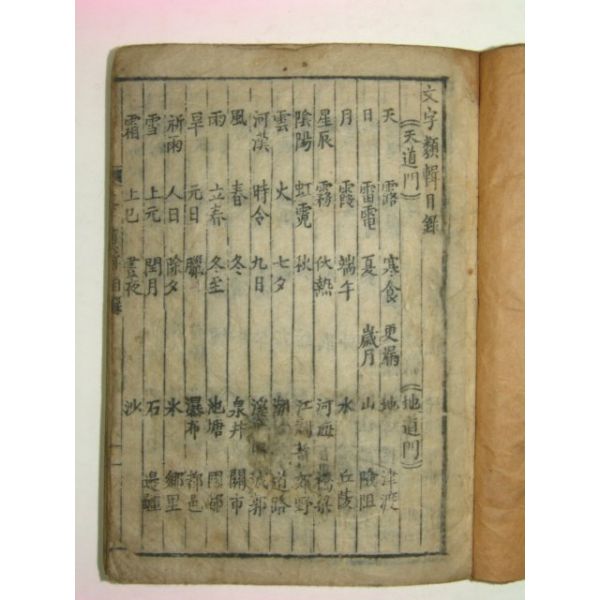 文字類輯目錄
(天道門) (地道門)
天 露 寒食 更漏 地 津渡
日 雷電 夏 歲月 山 險阻
月 霞 端午 水 丘陵
星辰 霧 伏熱 河海 橋梁
陰陽 虹霓 秋 江 郊野
雲 火 七夕 湖 道路
河漢 時令 九日 溪 城郭
風 春 冬 泉井 關市
雨 立春 冬至 池塘
旱 元日 臘 瀑布 都邑
祈雨 人日 除夕 氷 鄉里
雪 上元 閏月 石 邊
霜 上巳 晝夜 沙